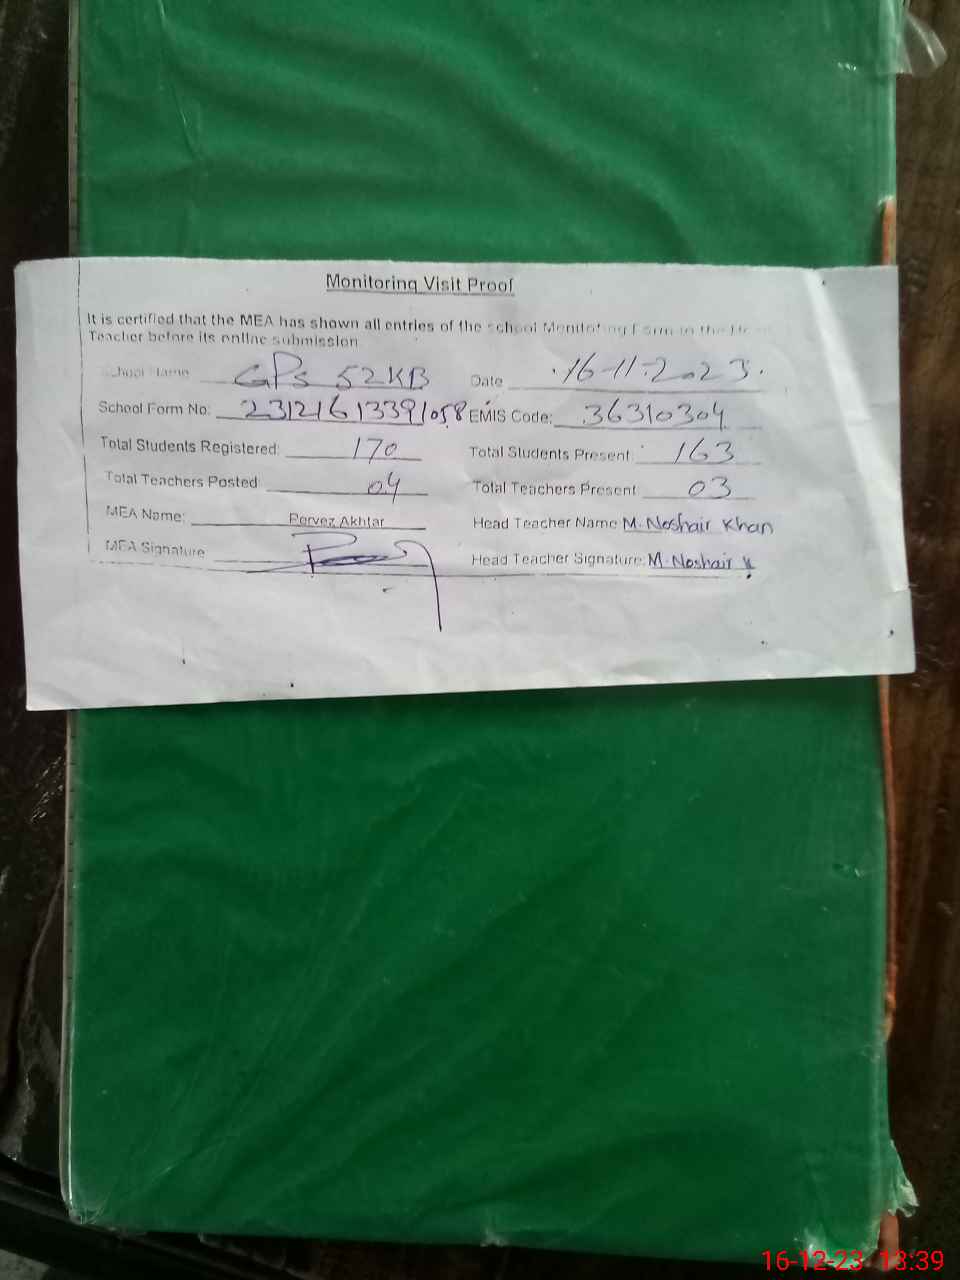 Monitoring Visit Proof
It is certified that the MEA has shown all entries of the school Monitoring Form to the Head
Teacher before its online submission.
School Name GPS 52KB Date 16-11-2023.
School Form No: 23121613391058 EMIS Code: 36310304
Total Students Registered: 170 Total Students Present: 163
Total Teachers Posted: 04 Total Teachers Present 03
MEA Name: Pervez Akhtar Head Teacher Name M. Noshair Khan
MEA Signature Head Teacher Signature: M. Noshair K
16-12-23 13:39